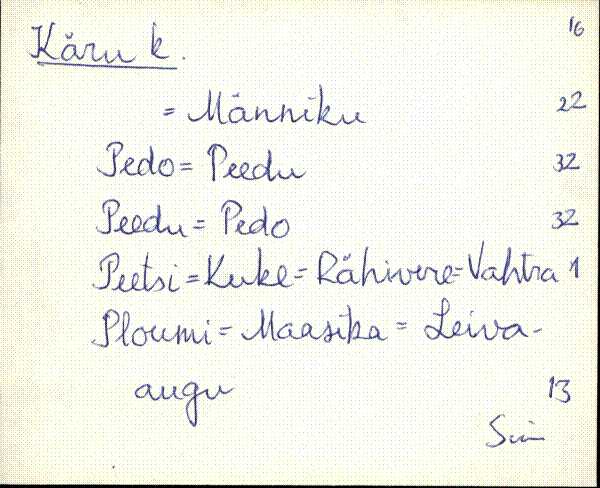 16
Käru k.
= Männiku 22
Pedo = Peedu 32
Peedu = Pedo 32
Peetsi = Kuke = Rähivere = Vahtra 1
Ploumi = Maasika = Leiva-
augu 13